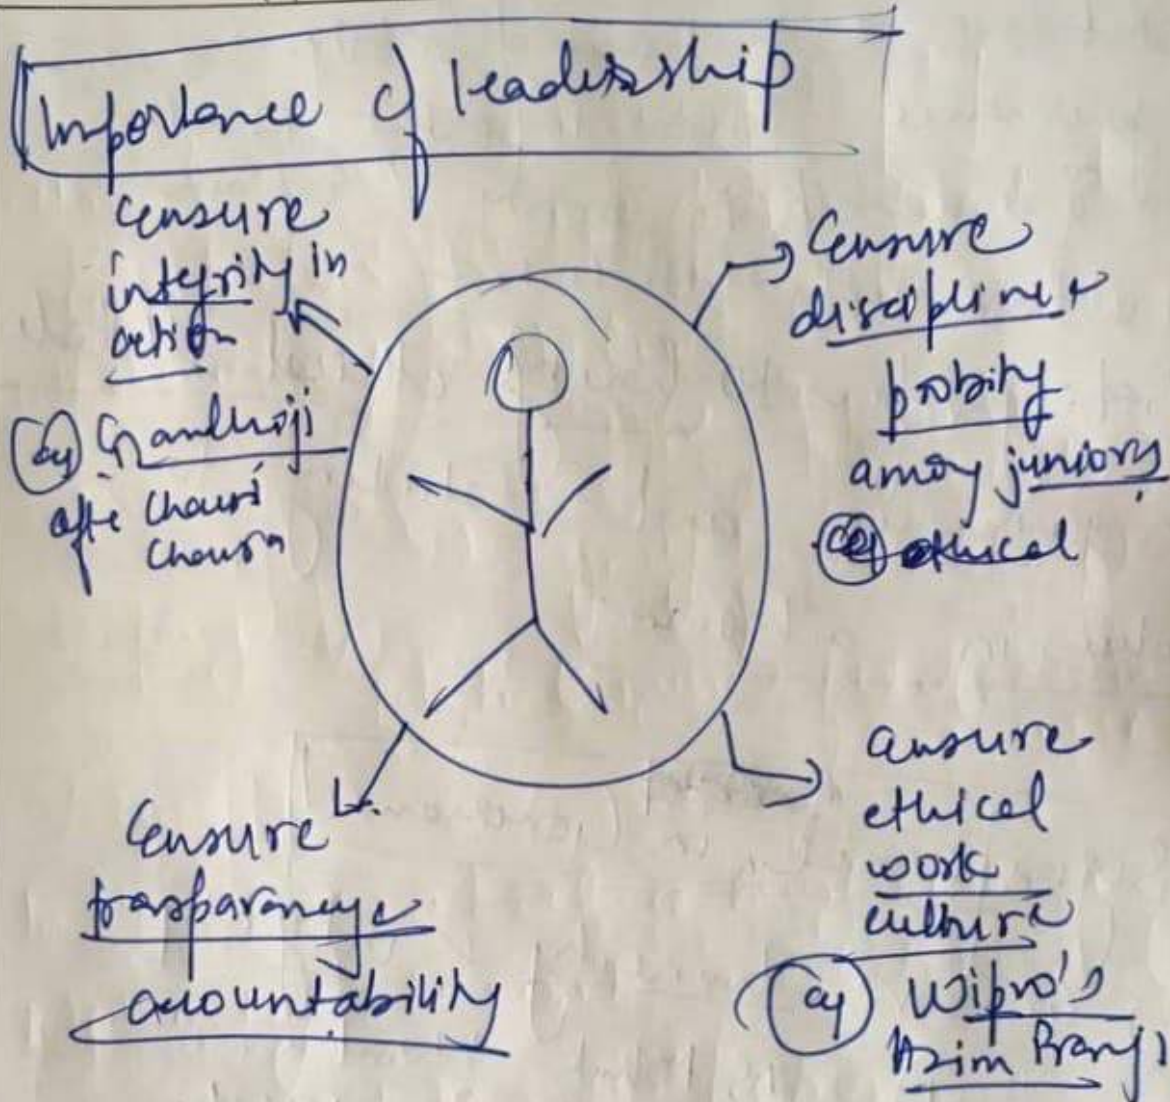 Importance of leadership
Ensure
integrity in
action
eg Gandhiji
after Chauri
Chaura
Ensure
discipline &
probity
among juniors
eg ethical
Ensure
trasparancy &
accountability
ensure
ethical
work
culture
eg Wipro's
Azim Premji